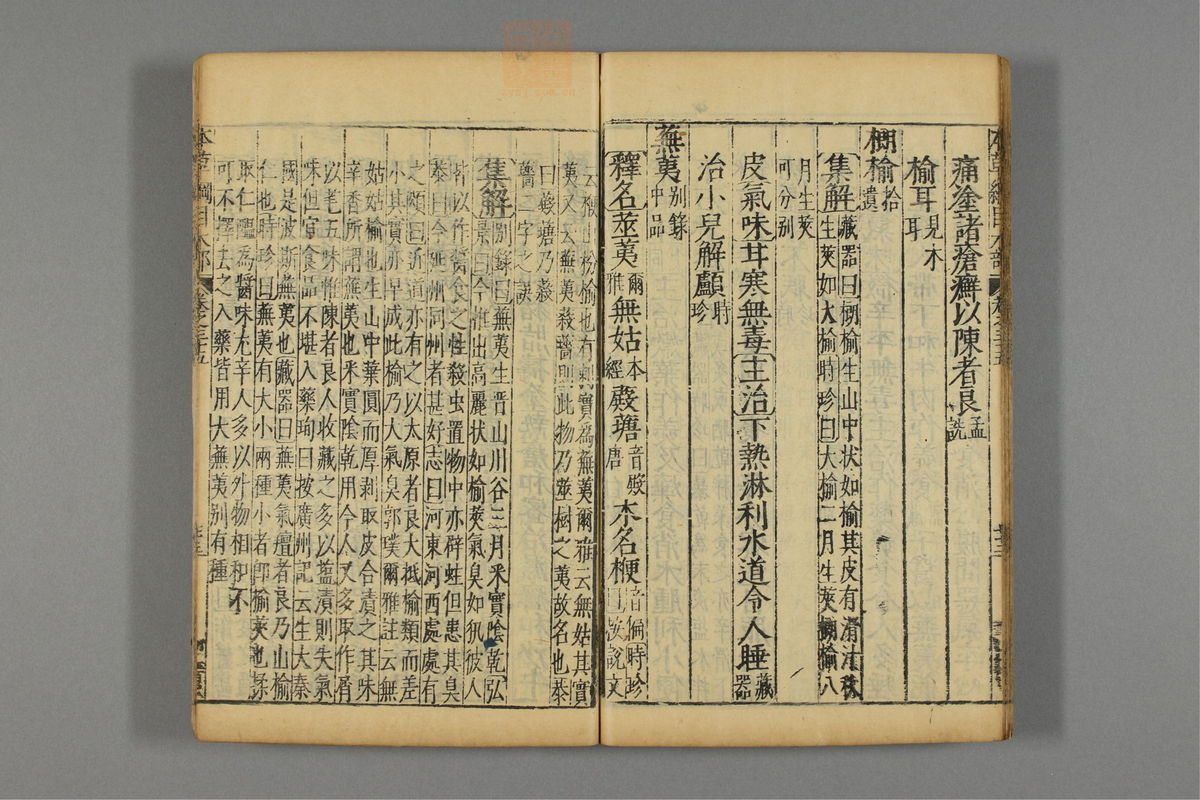 痛塗諸瘡癬以陳者良孟詵
榆耳見木耳
榔榆拾遺
集解藏器曰榔榆生山中状如榆其皮有滑汁秋
生莢如大榆時珍曰大榆二月生莢榔榆八
月生莢可分别
皮氣味甘寒無毒主治下熱淋利水道令人睡藏器
治小兒解顱時珍
蕪荑别錄中品
釋名莁荑爾雅無姑本經㼱瑭音殿唐木名梗音偏時珍曰按說文
云梗山枌榆也有刺實為蕪荑爾雅云無姑其實
荑又云蕪荑㼱䕽則此物乃莁樹之荑故名也恭
曰㼱瑭乃㼱
䕽二字之誤
集解别錄曰蕪荑生晉山川谷三月釆實陰乾弘
景曰今惟出高麗状如榆莢氣臭如犼彼人
皆以作醬食之性殺虫置物中亦辟蛀但患其臭
恭曰今延州同州者甚好志曰河東河西處處有
之頌曰近道亦有之以太原者良大抵榆類而差
小其實亦早成此榆乃大氣臭郭璞爾雅註云無
姑姑榆也生山中葉圓而厚剥取皮合漬之其味
辛香所謂蕪荑也釆實陰乾用今人又多取作屑
以芼五味惟陳者良人收藏之多以鹽漬則失氣
味但宜食品不堪入藥珣曰按廣州記云生大秦
國是波斯蕪荑也藏器曰蕪荑氣羶者良乃山榆
仁也時珍曰蕪荑有大小兩種小者即榆莢也揉
取仁醞為醬味尤辛人多以外物相和不
可不擇去之入藥皆用大蕪荑别有種
本草綱目木部
卷之三十五